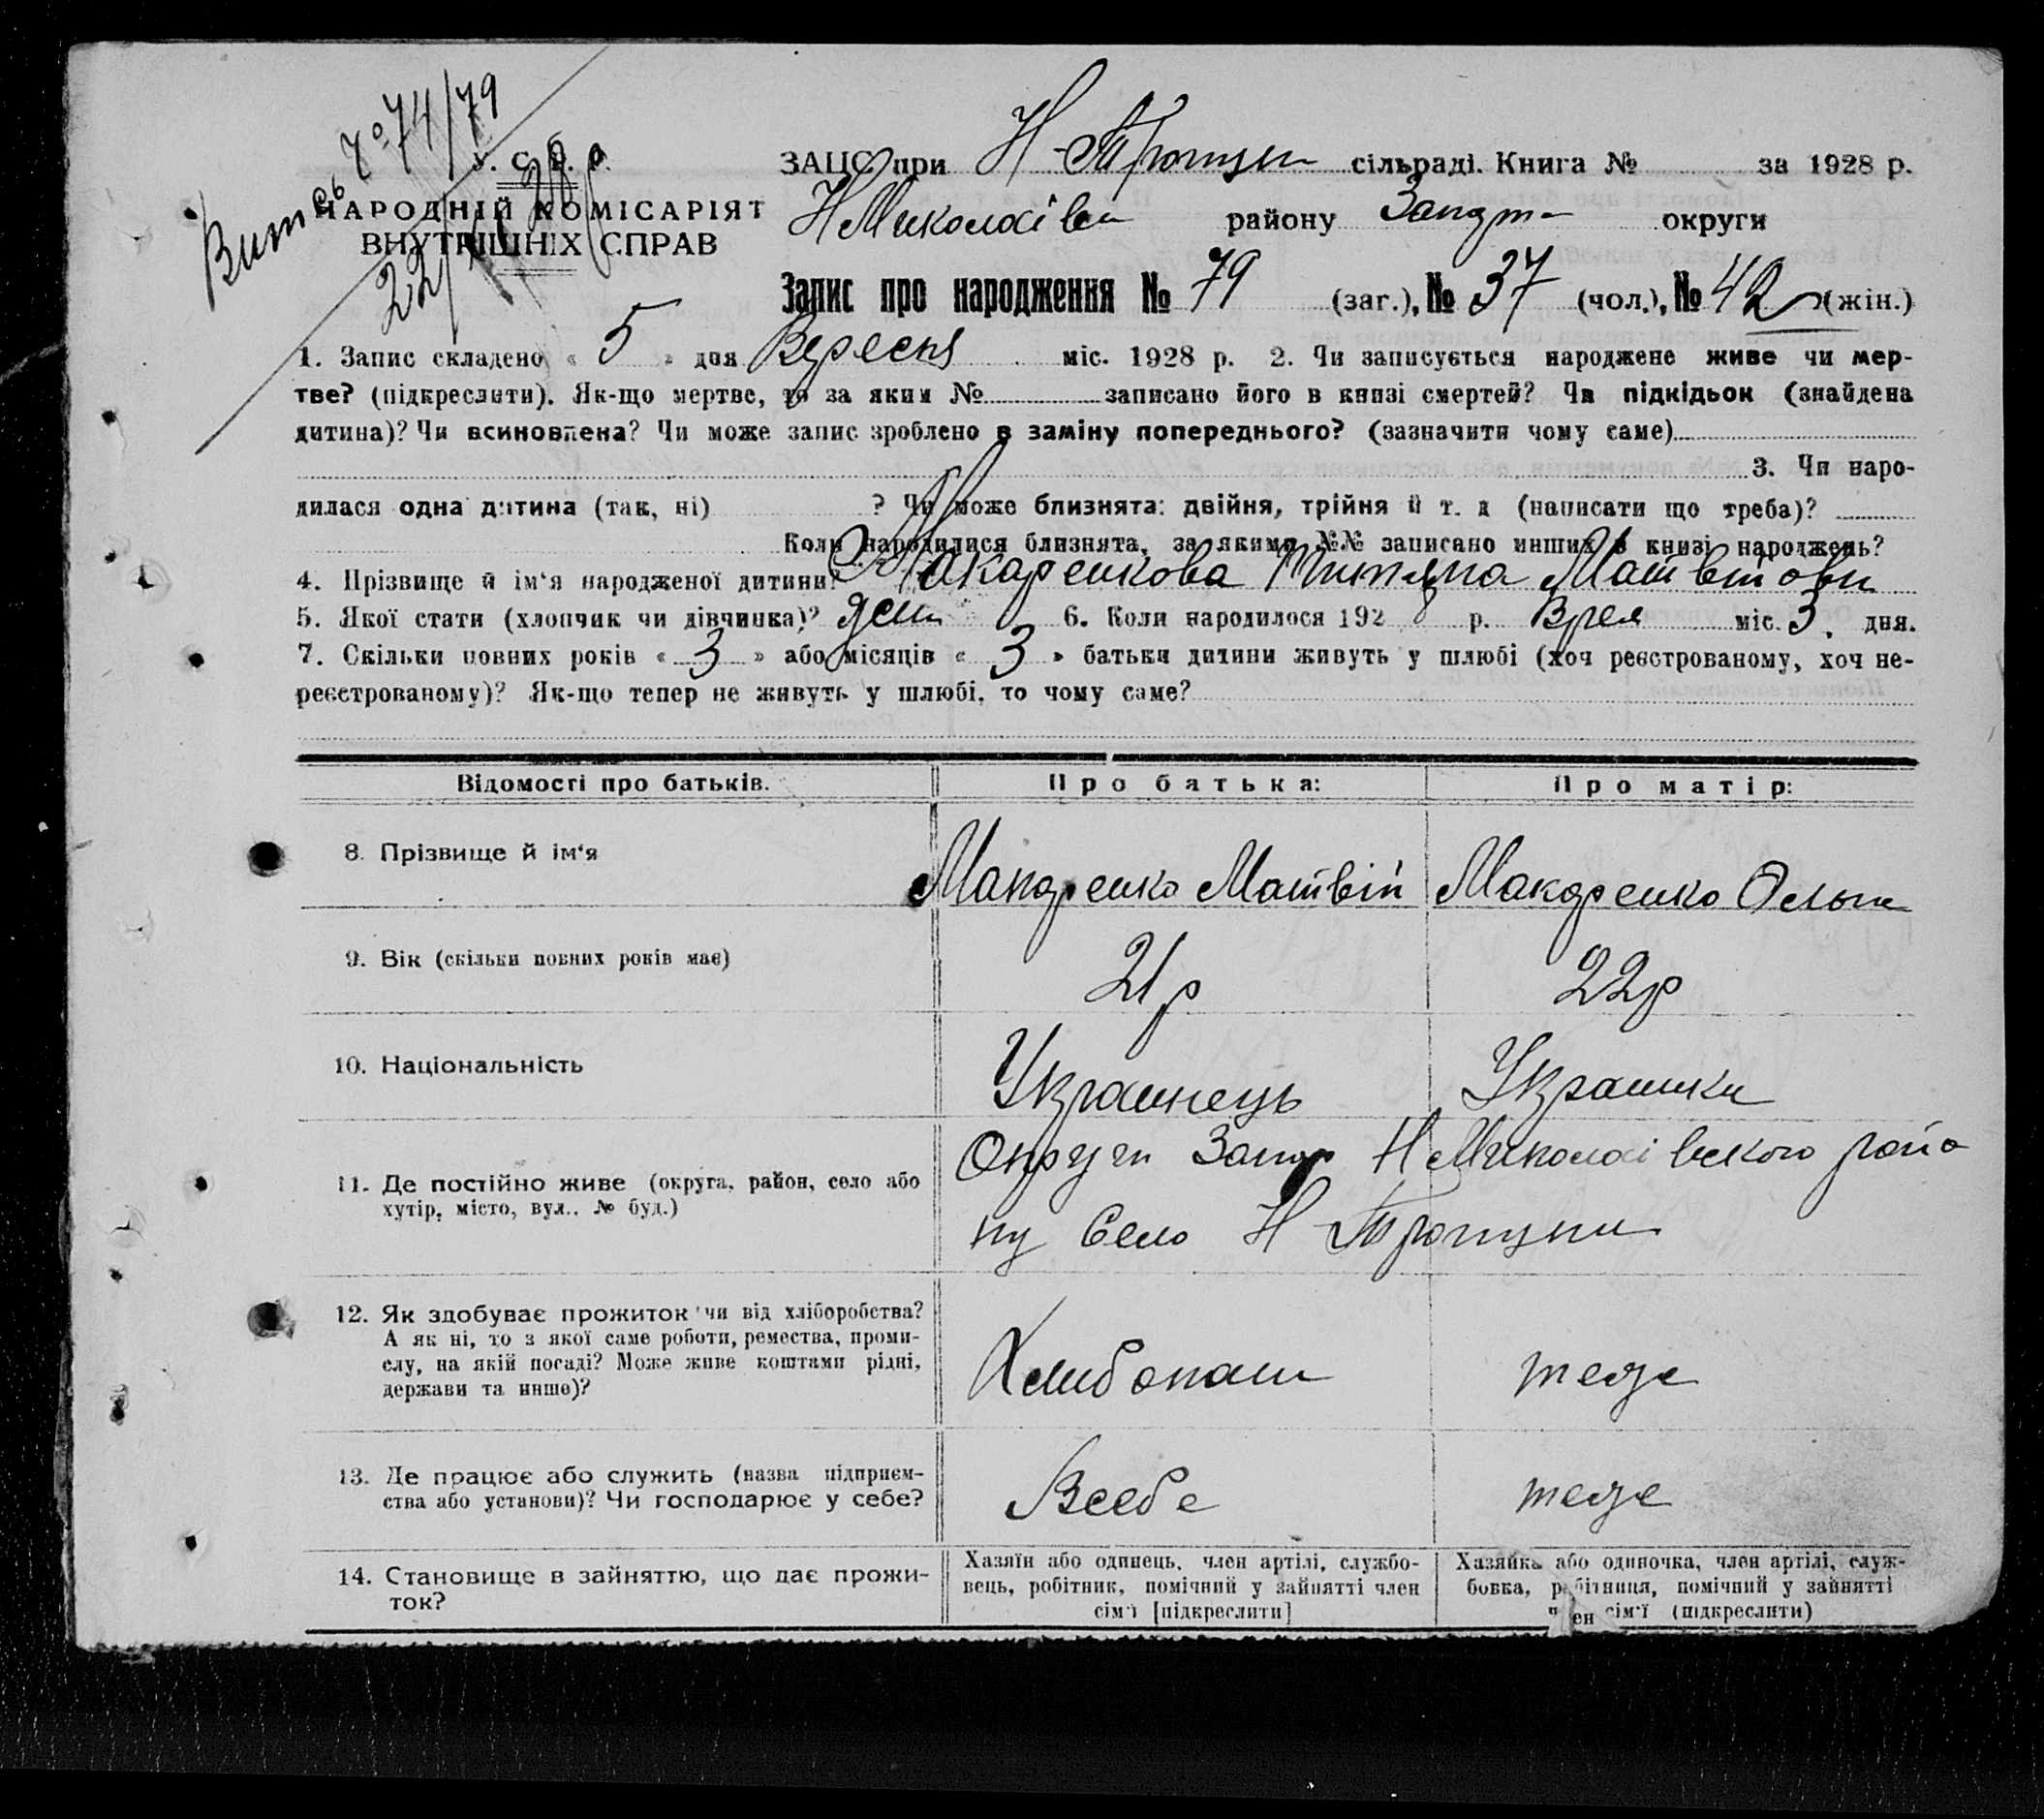 Вит сь № 74/79
22/
У. С. Р. Р.
НАРОДНІЙ КОМІСАРІЯТ
ВНУТРІШНІХ СПРАВ
ЗАЦС при Н-Троицки сільраді. Книга № за 1928 р.
НМиколаївки району Запор округи
Запис про народження № 79 (заг.), № 37 (чол.), № 42 (жін.)
1. Запис складено « 5 » дня Вересня міс. 1928 р. 2. Чи записується народжене живе чи мер-
тве? (підкреслити). Як-що мертве, то за яким № записано його в книзі смертей? Чи підкідьок (знайдена
дитина)? Чи всиновлена? Чи може запис зроблено в заміну попереднього? (зазначити чому саме)
3. Чи наро-
дилася одна дитина (так, ні) ? Чи може близнята: двійня, трійня й т. д (написати що треба)?
Коли народилися близнята, за якими №№ записано инших в книзі народжень?
4. Прізвище й ім‘я народженої дитини? Макаренкова Матвіїовн
5. Якої стати (хлопчик чи дівчинка)? 6. Коли народилося 192 8 р. Врес міс. 3 дня.
7. Скільки повних років « 3 » або місяців « 3 » батьки дитини живуть у шлюбі (хоч реєстрованому, хоч не-
реєстрованому)? Як-що тепер не живуть у шлюбі, то чому саме?
Відомості про батьків. Про батька: Про матір:
8. Прізвище й ім‘я Макаренко Матвій Макаренко Ольга
9. Вік (скільки повних років має) 21р 22р
10. Національність Украинець Украинка
11. Де постійно живе (округа, район, село або
хутір, місто, вул.. № буд.)
Округи Запор НМиколаівского райо
ну Село Н Троицки
12. Як здобуває прожиток чи від хліборобства?
А як ні, то з якої саме роботи, ремества, проми-
слу, на якій посаді? Може живе коштами рідні,
держави та инше)?
Хлибопаш теж
13. Де працює або служить (назва підприєм-
ства або установи)? Чи господарює у себе?
Всебе теж
14. Становище в зайняттю, що дає прожи-
ток?
Хазяїн або одинець, член артілі, службо-
вець, робітник, помічний у зайнятті член
сім‘ї [підкреслити]
Хазяйка або одиночка, член артілі, служ-
бовка, робітниця, помічний у зайнятті
член сім‘ї (підкреслити)